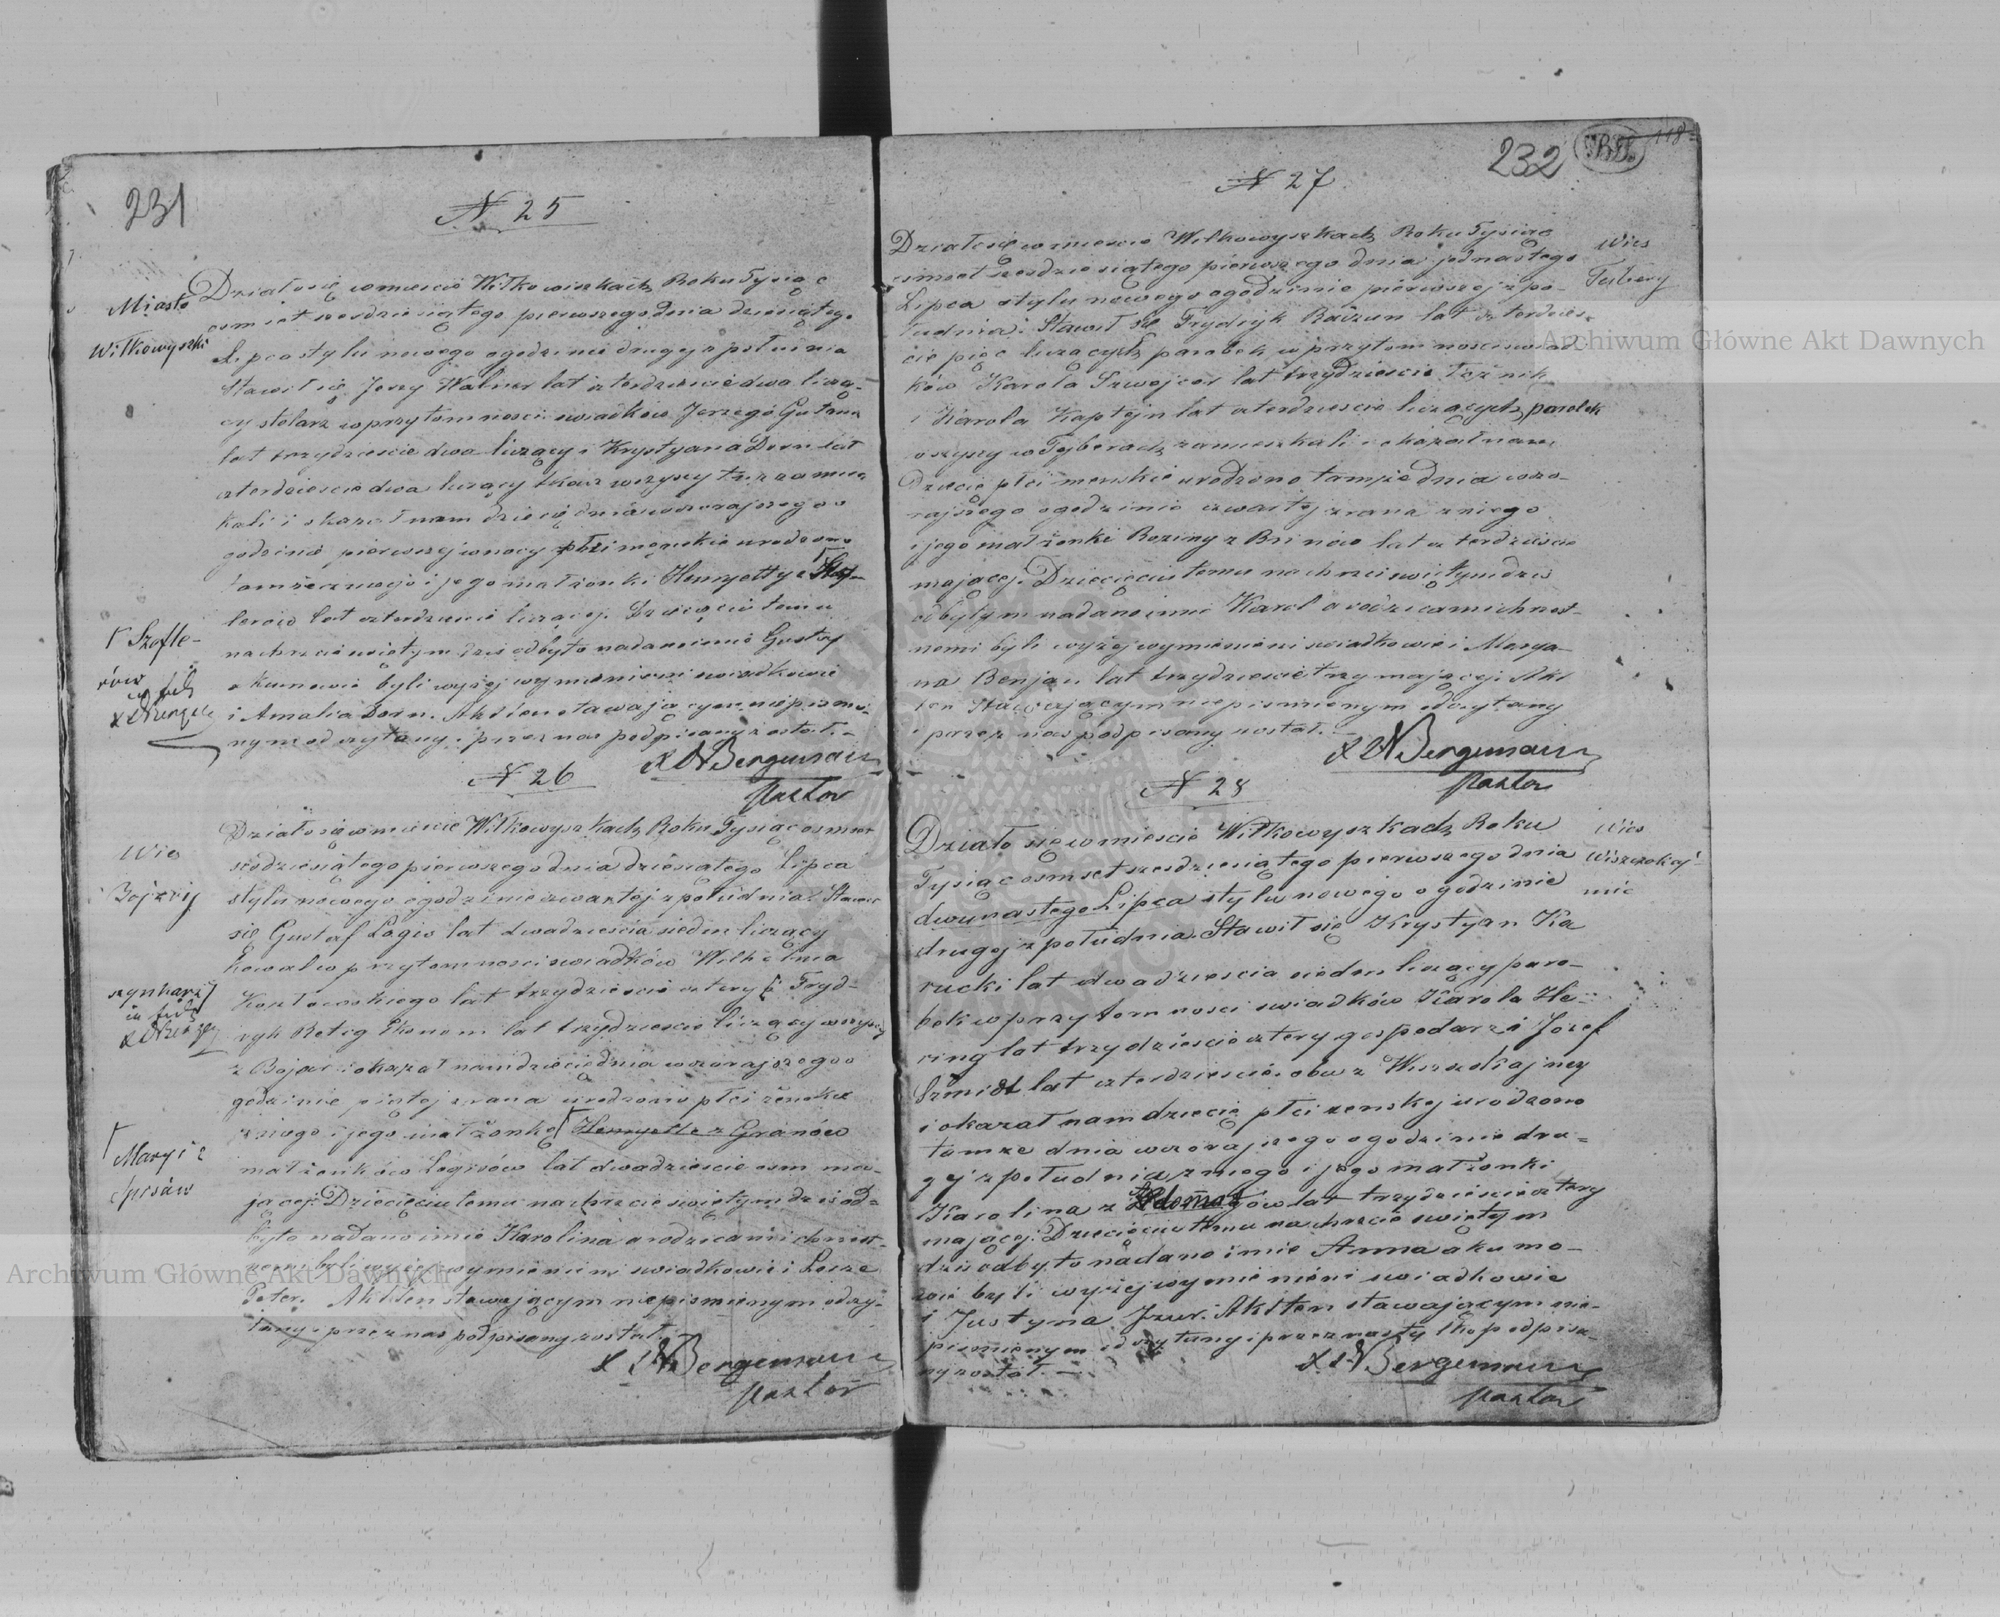 231
N 25
Miasto
Wiłkowyszki
Działo się w mieście Wiłkowiszkach Roku Tysiąc
osmset szesdziesiątego pierwszego dnia dziesiątego
Lipca stylu nowego o godzinie drugiej z południa
Stawił się Jerzy Walner lat czterdzieście dwa liczą-
cy stolarz w przytomnosci swiadków Jerzego Gutman
lat trzydzieście dwa liczący i Krystyana Dorn lat
czterdzieście dwa liczący tkacz wszyscy tu zamiesz
kali i okazał nam dziecię dnia wczorajszego o
godzinie pierwszej w nocy płci męzkie urodzone
tamże z niego i jego małżonki Henryetty z
lerów lat czterdzieście liczącej. Dziecięciu temu
na chrzcie swiętym dziś odbyto nadano imie Gustaw
a kumowie byli wyżej wymienieni swiadkowie
i Amalia Dorn. Akt ten stawającym niepismien-
nym odczytany i przez nas podpisany został.
Szofle-
rów
X A Bergemann
Pastor
N 26
Wies
Bojary
Działo się w mieście Wiłkowyszkach Roku Tysiąc osmset
sesdziesiątego pierwszego dnia dziesiątego Lipca
stylu nowego o godzinie czwartej z południa. Stawił
się Gustaf Logis lat dwadzieścia siedm liczący
kowal w przytomnosci swiadków Wilhelma
Kozłowskiego lat trzydzieście cztery i Fryd-
ryk Retig Ekonom lat trzydzieście liczący wszyscy
z Bojar i okazał nam dziecię dnia wczorajszego o
godzinie piątej z rana urodzone płci żenska
z niego i jego małżonki Henryette z Granów
małżonków Logisów lat dwadzieście osm ma-
jącej. Dziecięciu temu na chrzcie swiętym dziś od-
byto nadano imie Karolina a rodzicami chrzest-
nemi byli wyżej wymienieni swiadkowie i Lowize
Peter. Akt ten stawającym niepismiennym odczy-
tany i przez nas podpisany został.
szynkarz
Maryi z
X A Bergemann
Pastor
232
118
N 27
Wies
Tybery
Działo się w miescie Wiłkowyszkach Roku Tysiąc
osmset szesdziesiątego pierwszego dnia jednastego
Lipca stylu nowego o godzinie pierwszej z po-
łudnia. Stawił się Frydryk Raizun lat czterdzieś-
cie pięc liczących parobek, w przytomnosci swiad-
ków Karola Szwejcer lat trzydzieście
i Karola Kaptejn lat czterdzieście liczących, parobek
wszyscy w Tyberach zamieszkali i okazał nam
Dziecie płci menskie urodzono tamże dnia wczo-
rajszego o godzinie czwartej z rana z niego
i jego małżonki Roziny z Brinów lat czterdzieście
mającej. Dziecięciu temu na chrzci swiętym dzis
odbytym nadano imie Karol a rodzicami chrzest-
nemi byli wyżej wymienieni swiadkowie i Marya-
na Benjan lat trzydzieście trzy mający. Akt
ten stawającym niepismiennym odczytany
i przez nas podpisany został.
X A Bergemann
Pastor
N 28
Wies
Działo się w miescie Wiłkowyszkach Roku
Tysiąc osmset szesdziesiątego pierwszego dnia
dwunastego Lipca stylu nowego o godzinie
drugej z południa. Stawił się Krystyan Ka
rucki lat dwadzieścia siedm liczący paro-
bek w przytomnosci swiadków Karola He-
ring lat trzydzieście cztery gospodarz i Jozef
Szmidt lat czterdzieście obaj z
i okazał nam dziecię płci zenskej urodzono
tamze dnia wczorajszego o godzinie dru-
gej z południa z niego i jego małżonki
Karolina z lat trzydzieście cztery
mającej. Dziecięciu temu na chrzcie swiętym
dziś odbyto nadano imie Anna a kumo-
wie byli wyżej wymienieni swiadkowie
i Justyna. Akt ten stawającym nie-
pismiennym odczytany i przez nas tylko podpisa-
ny został.
X A Bergemann
Pastor
Archiwum Główne Akt Dawnych
Archiwum Główne Akt Dawnych